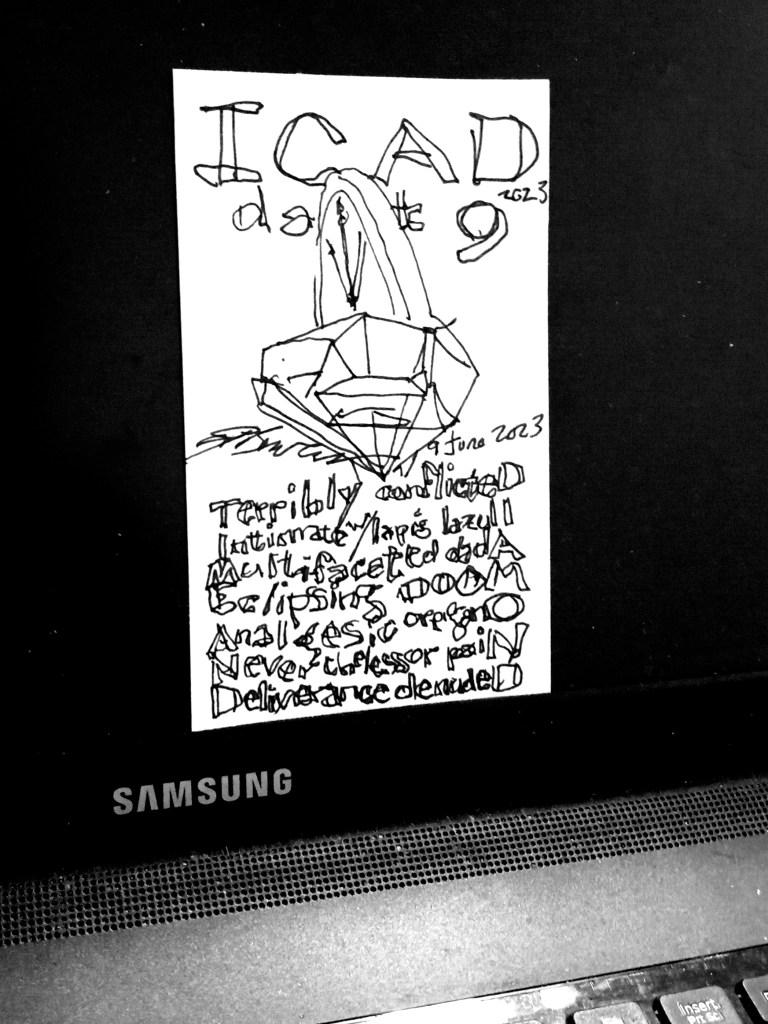 ICAD
2023
9
9 June 2023
TerribLy conflicteD
Intimate w/ lapis lazulI
Multifaceted dadA
Eclipsing DOOM
Analgesic
Nevertheless or paiN
Deliverance denudeD
SAMSUNG
Insert
Prt Sc